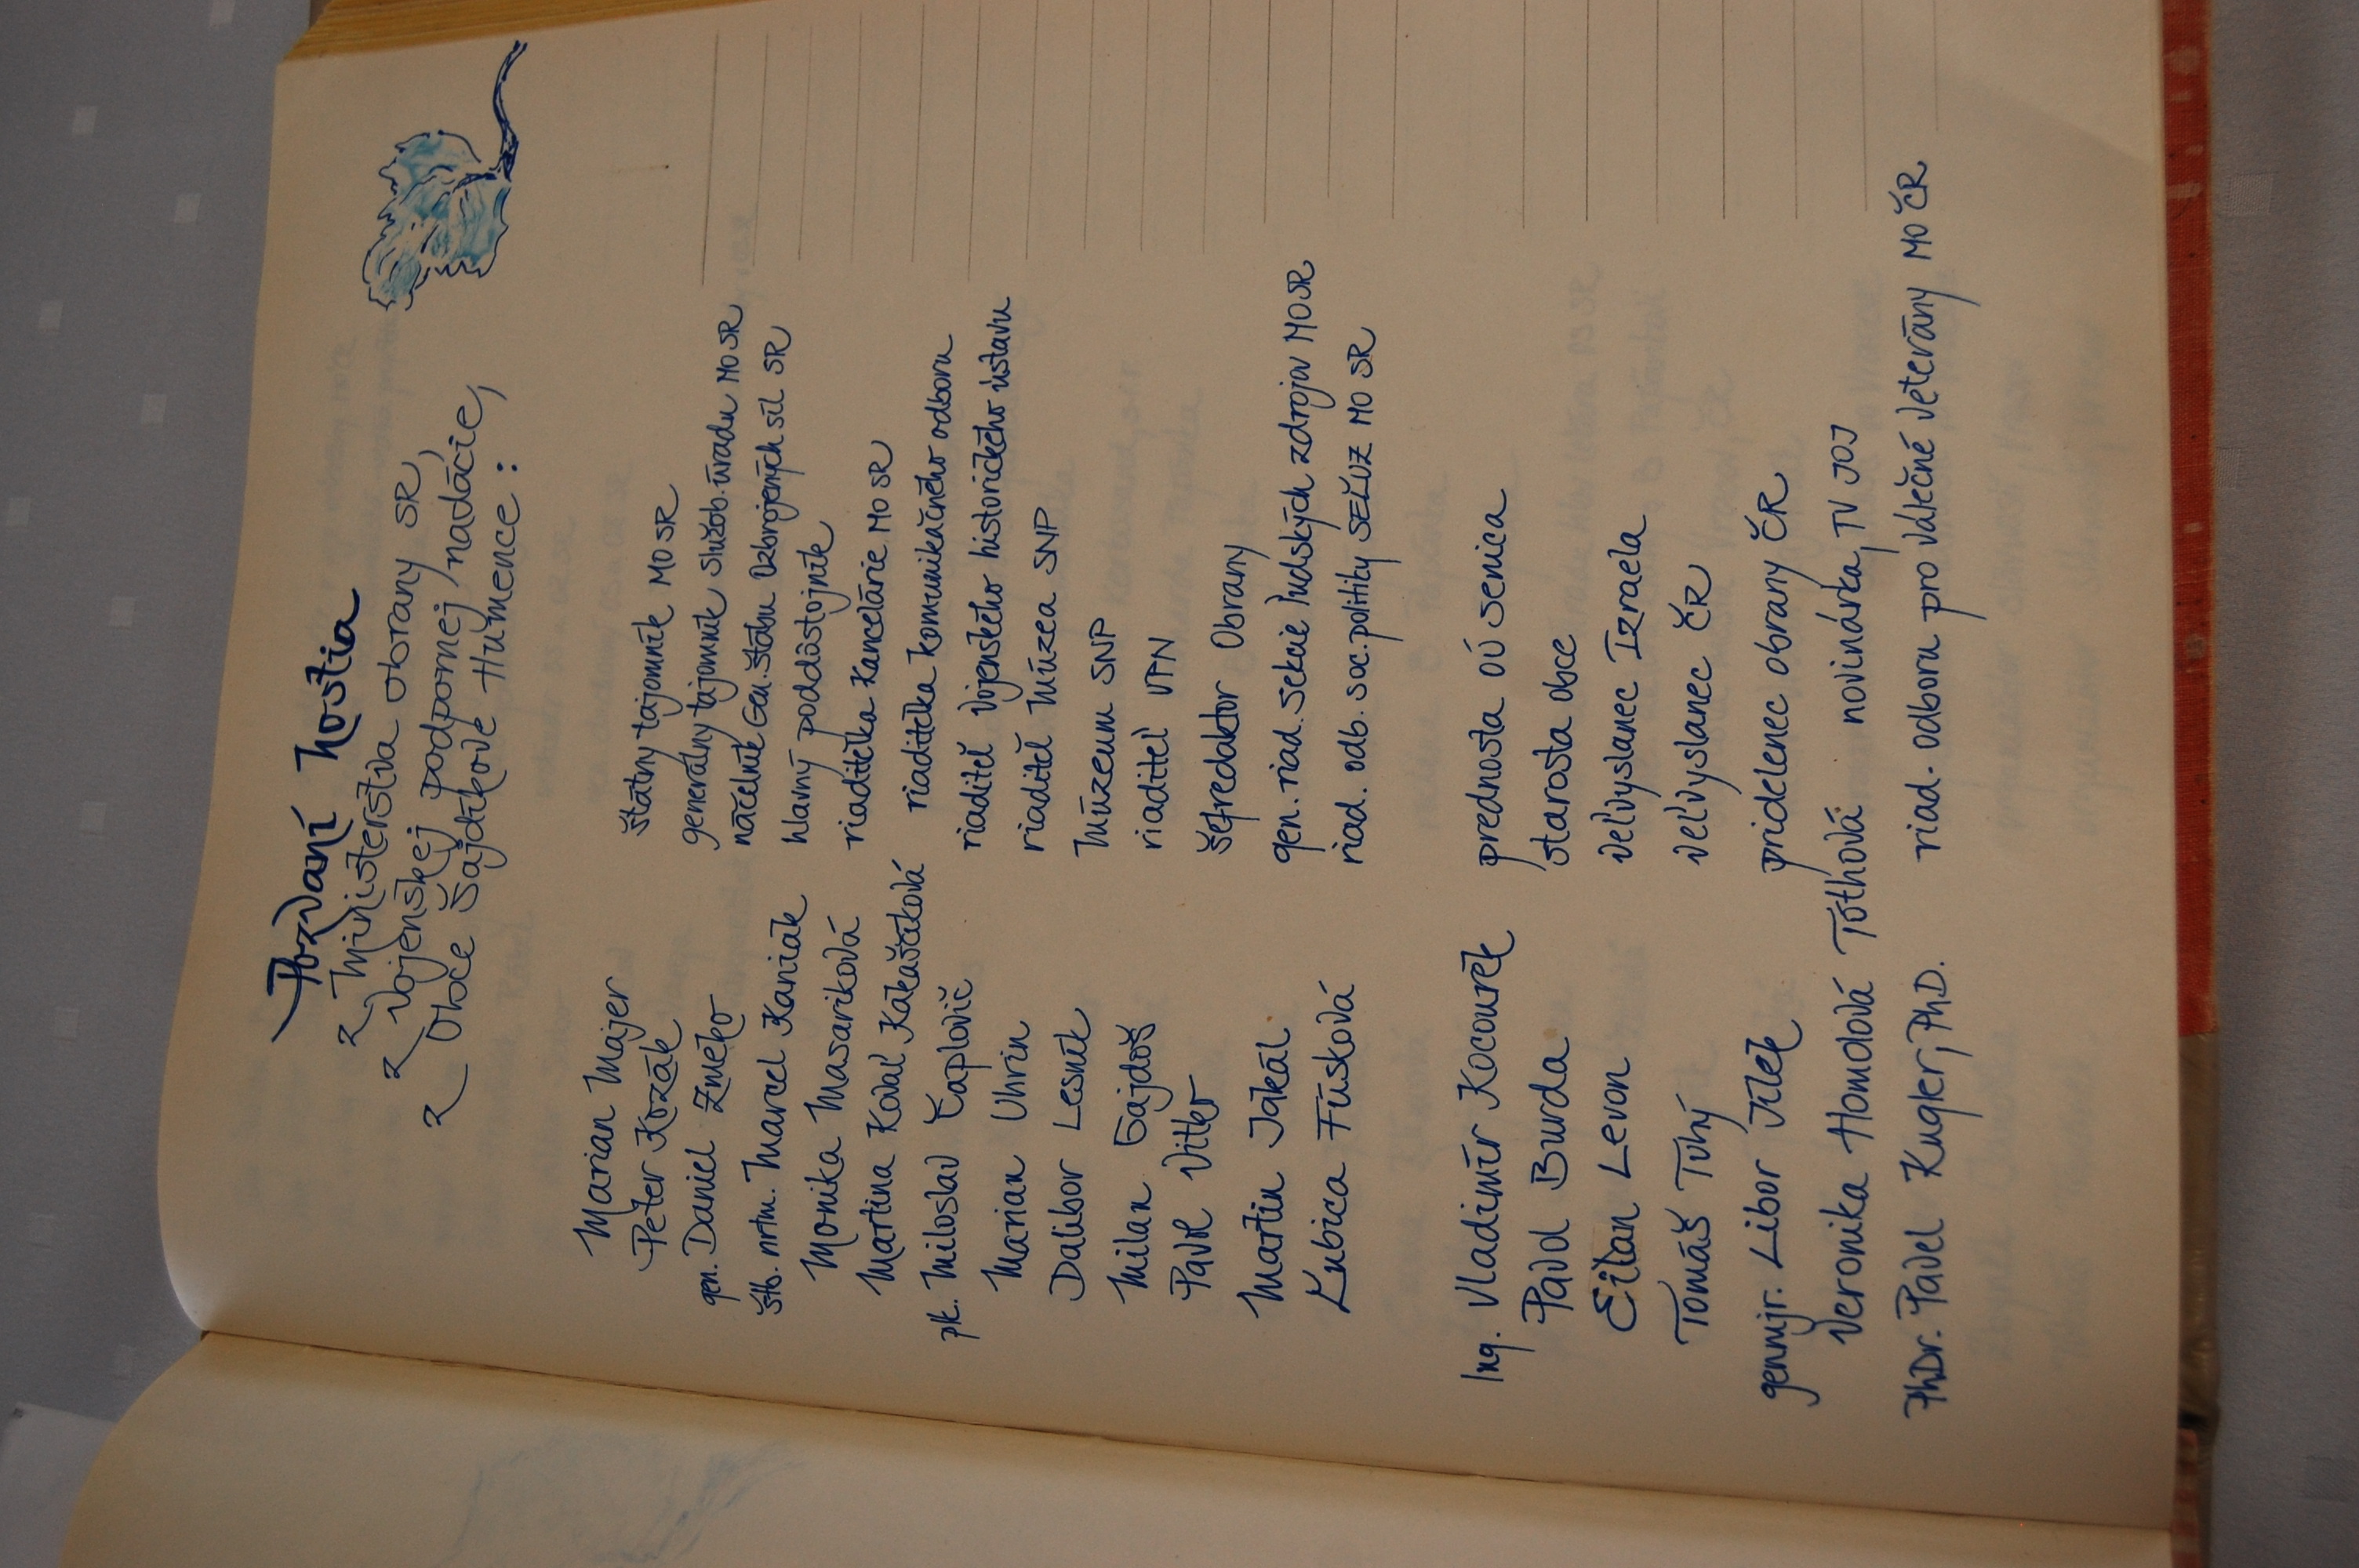 Pozvaní hostia
z Ministerstva obrany SR,
z Vojenskej podpornej nadácie,
z Obce Šajdíkové Humence:
Marian Majer štátny tajomník MO SR
Peter Kozák generálny tajomník služob. úradu MO SR
gen. Daniel Zmeko náčelník Gen. štábu Ozbrojených síl SR
štb. nrtm. Marcel Kaniak hlavný poddôstojník
Monika Masariková riaditeľka Kancelárie MO SR
Martina Kovaľ Kakaščíková riaditeľka komunikačného odboru
plk. Miloslav Čaplovič riaditeľ Vojenského historického ústavu
Marian Uhrin riaditeľ Múzea SNP
Dalibor Lesník Múzeum SNP
Milan Gajdoš riaditeľ VPN
Pavol Vitko šéfredaktor Obrany
Martin Jakál gen. riad. sekcie ľudských zdrojov MO SR
Ľubica Fúsková riad. odb. soc. politiky SEĽUZ MO SR
Ing. Vladimír Kocourek prednosta OÚ Senica
Pavol Burda starosta obce
Eitan Levon veľvyslanec Izraela
Tomáš Tuhý veľvyslanec ČR
genmjr. Libor Jílek pridelenec obrany ČR
Veronika Homolová Tóthová novinárka, TV JOJ
PhDr. Pavel Kugler, PhD. riad. odboru pro válečné veterány MO ČR